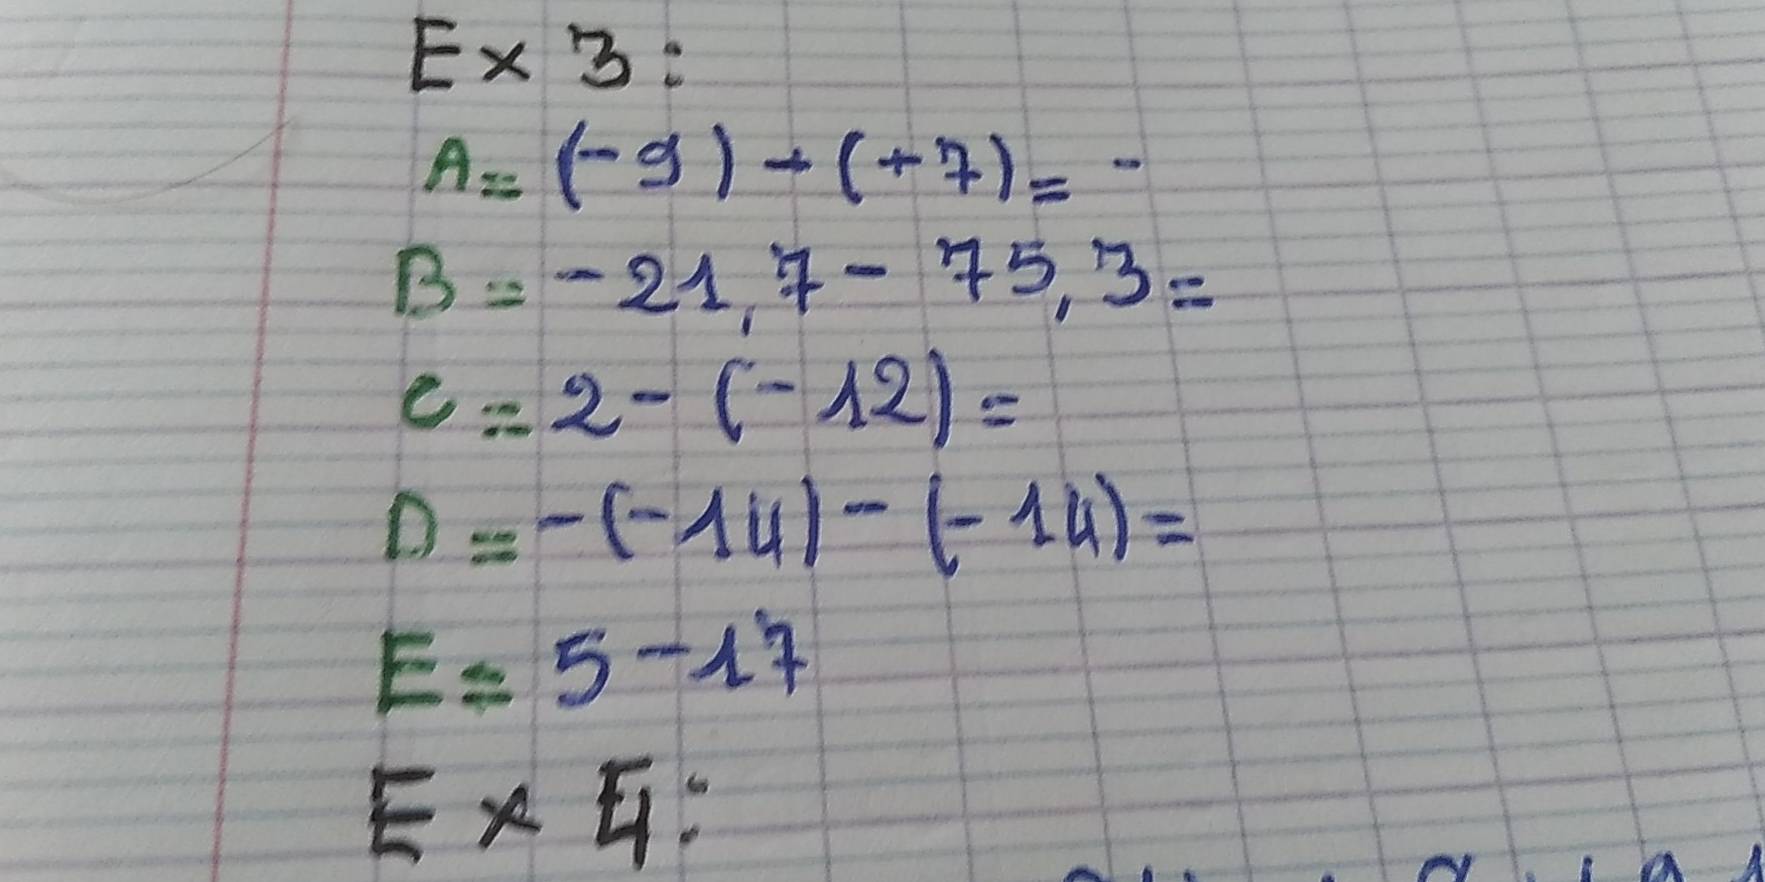 Ex 3:
A= (-9) + (+7) = -
B = -21,7 - 75,3 =
C = 2 - (-12) =
D = -(-14) - (-14) =
E = 5 - 17
Ex 4: